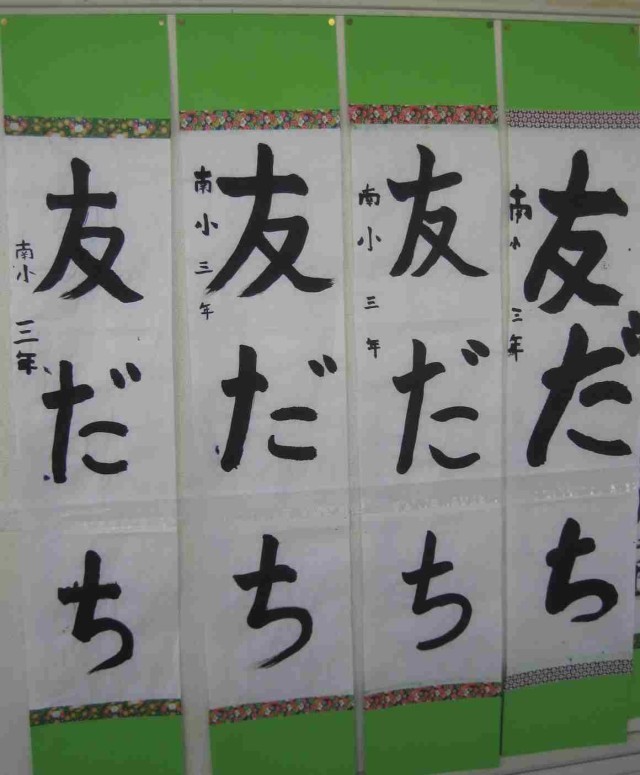 友だち
南小 三年
友だち
南小 三年
友だち
南小 三年
友だち
南小 三年